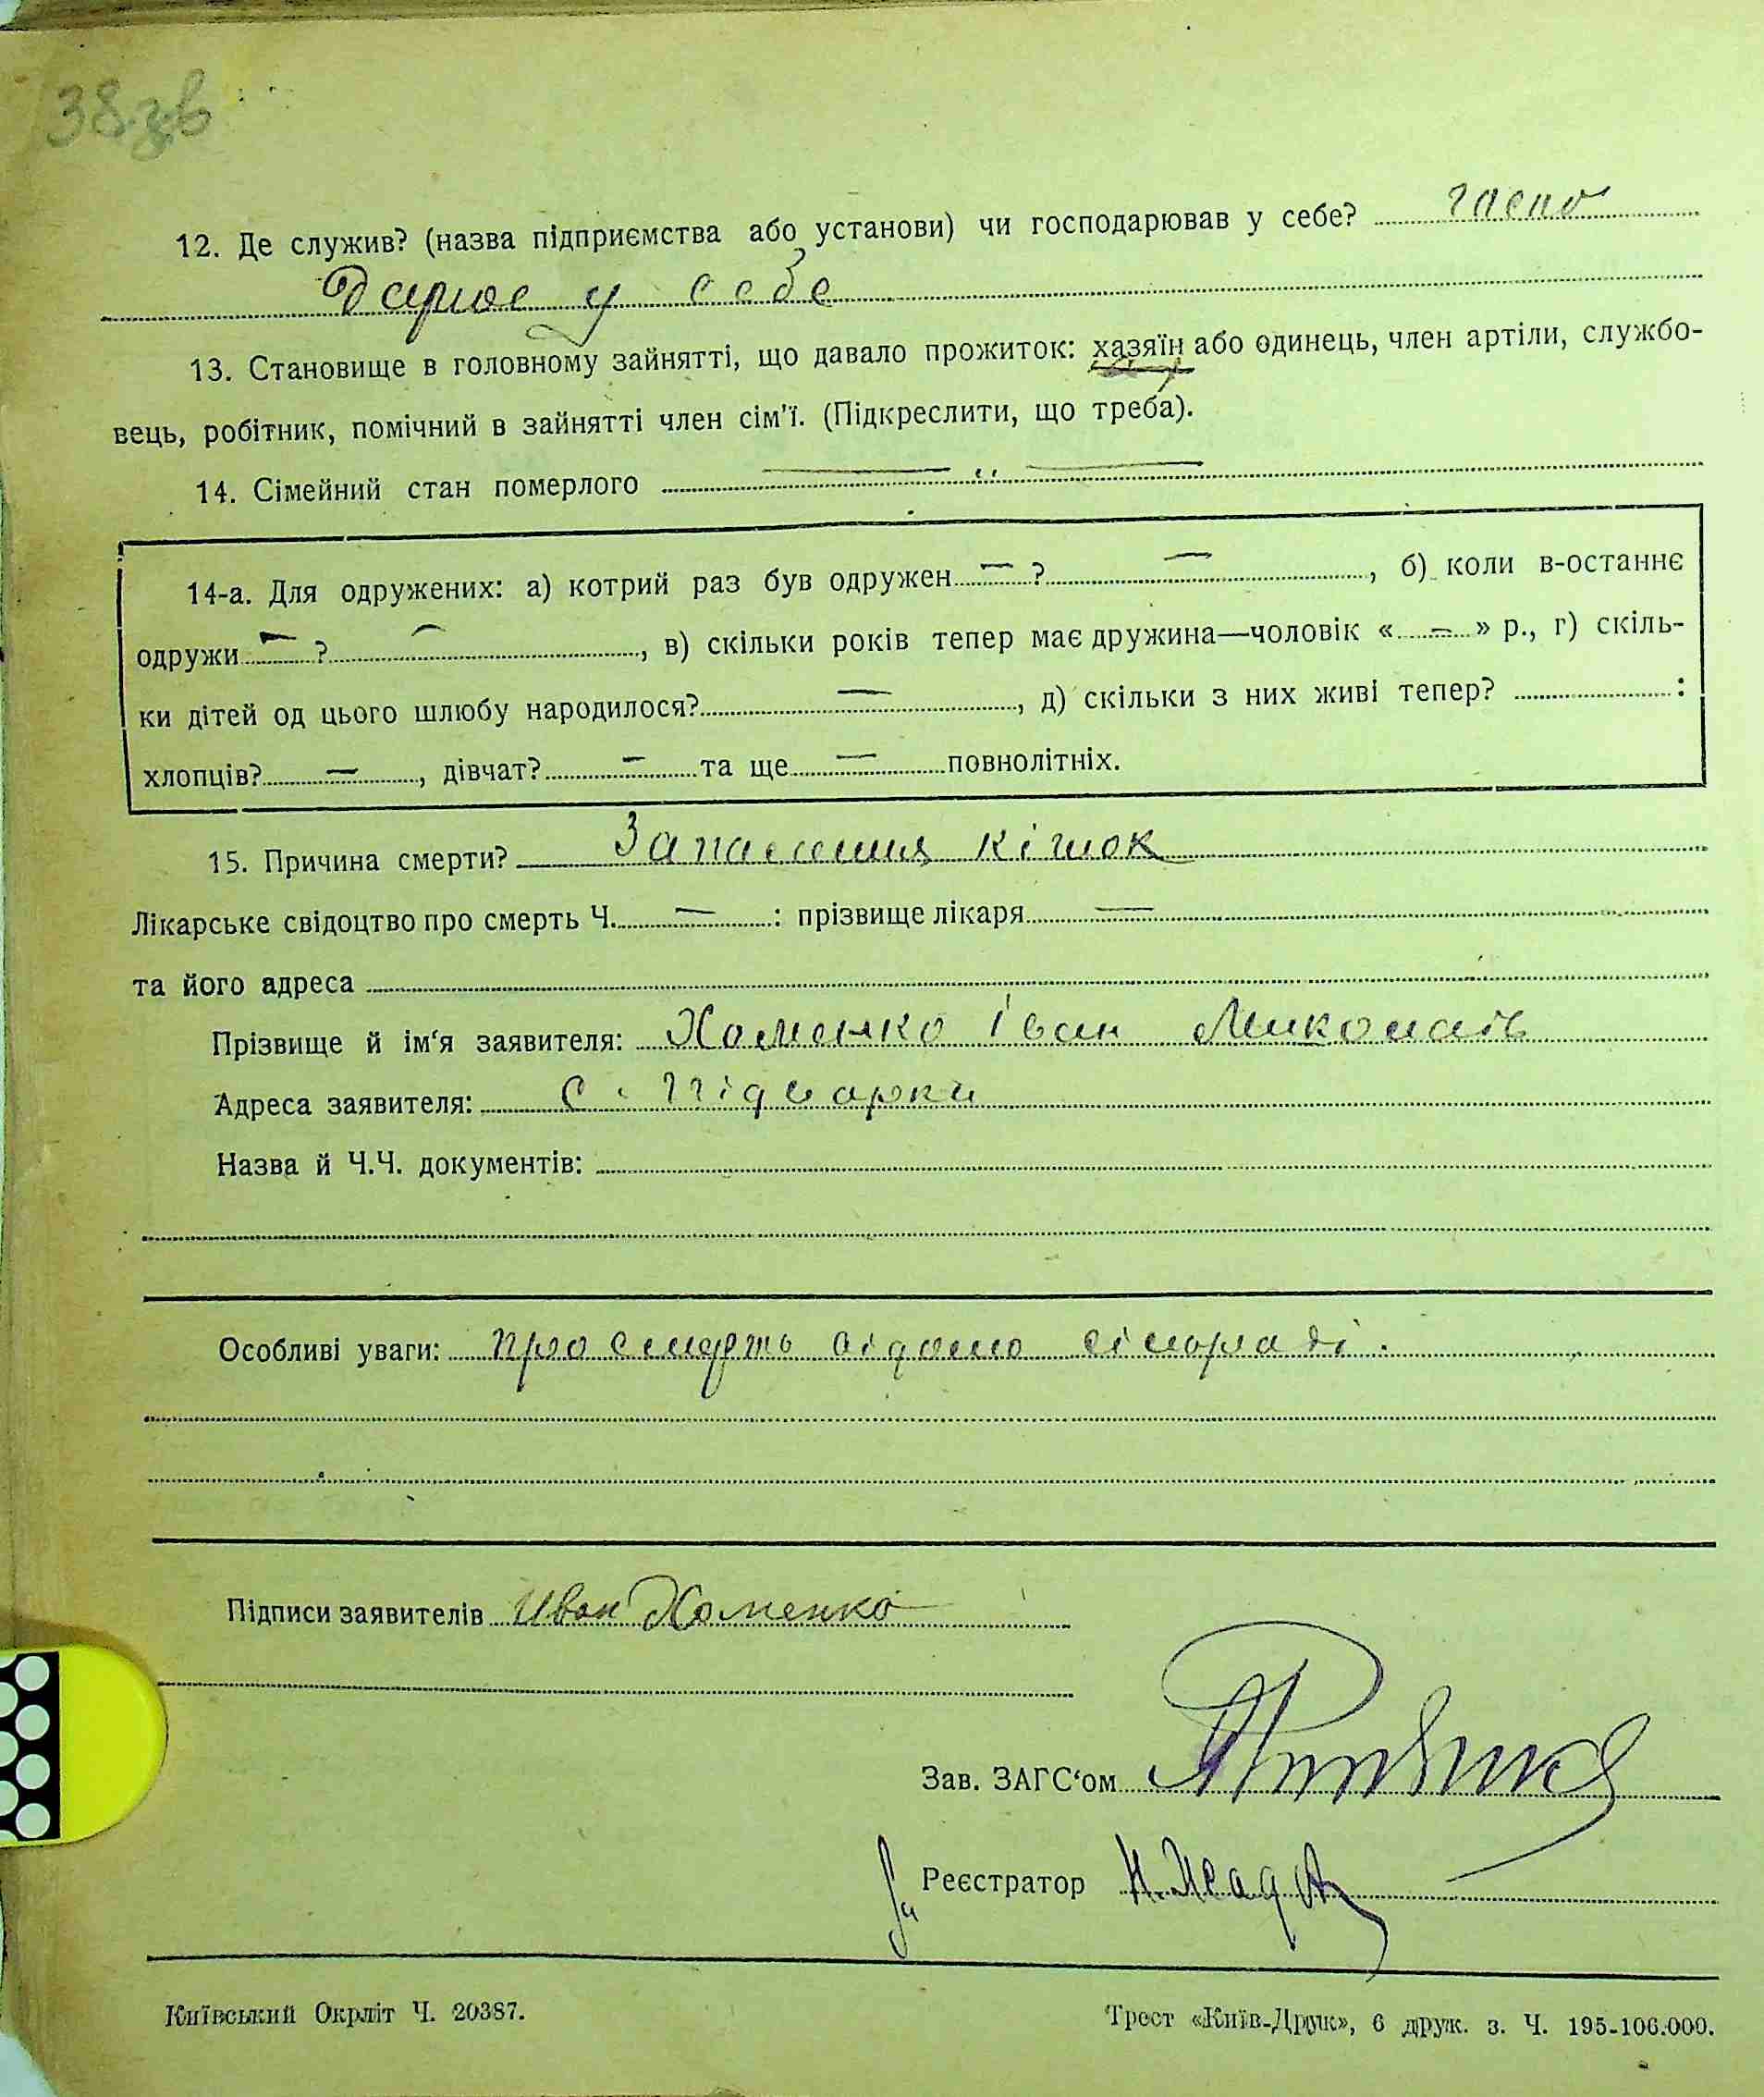 38 зв
12. Де служив? (назва підприємства або установи) чи господарював у себе? госпо
дарює у себе
13. Становище в головному зайнятті, що давало прожиток: хазяїн або одинець, член артіли, службо-
вець, робітник, помічний в зайнятті член сім'ї. (Підкреслити, що треба).
14. Сімейний стан померлого — " —
14-а. Для одружених: а) котрий раз був одружен — ? —, б) коли в-останнє
одружи — ? —, в) скільки років тепер має дружина—чоловік « — » р., г) скіль-
ки дітей од цього шлюбу народилося? —, д) скільки з них живі тепер? :
хлопців? —, дівчат? — та ще — повнолітніх.
15. Причина смерти? Запалення кішок
Лікарське свідоцтво про смерть Ч. — : прізвище лікаря —
та його адреса
Прізвище й ім'я заявителя: Хоменко Іван Миколаїв
Адреса заявителя: с. Підварки
Назва й Ч.Ч. документів:
Особливі уваги: про смерть відомо сільраді.
Підписи заявителів Иван Хоменко
Зав. ЗАГС'ом
Реєстратор
Київський Окрліт Ч. 20387.
Трест «Київ-Друк», 6 друк. з. Ч. 195-106.000.